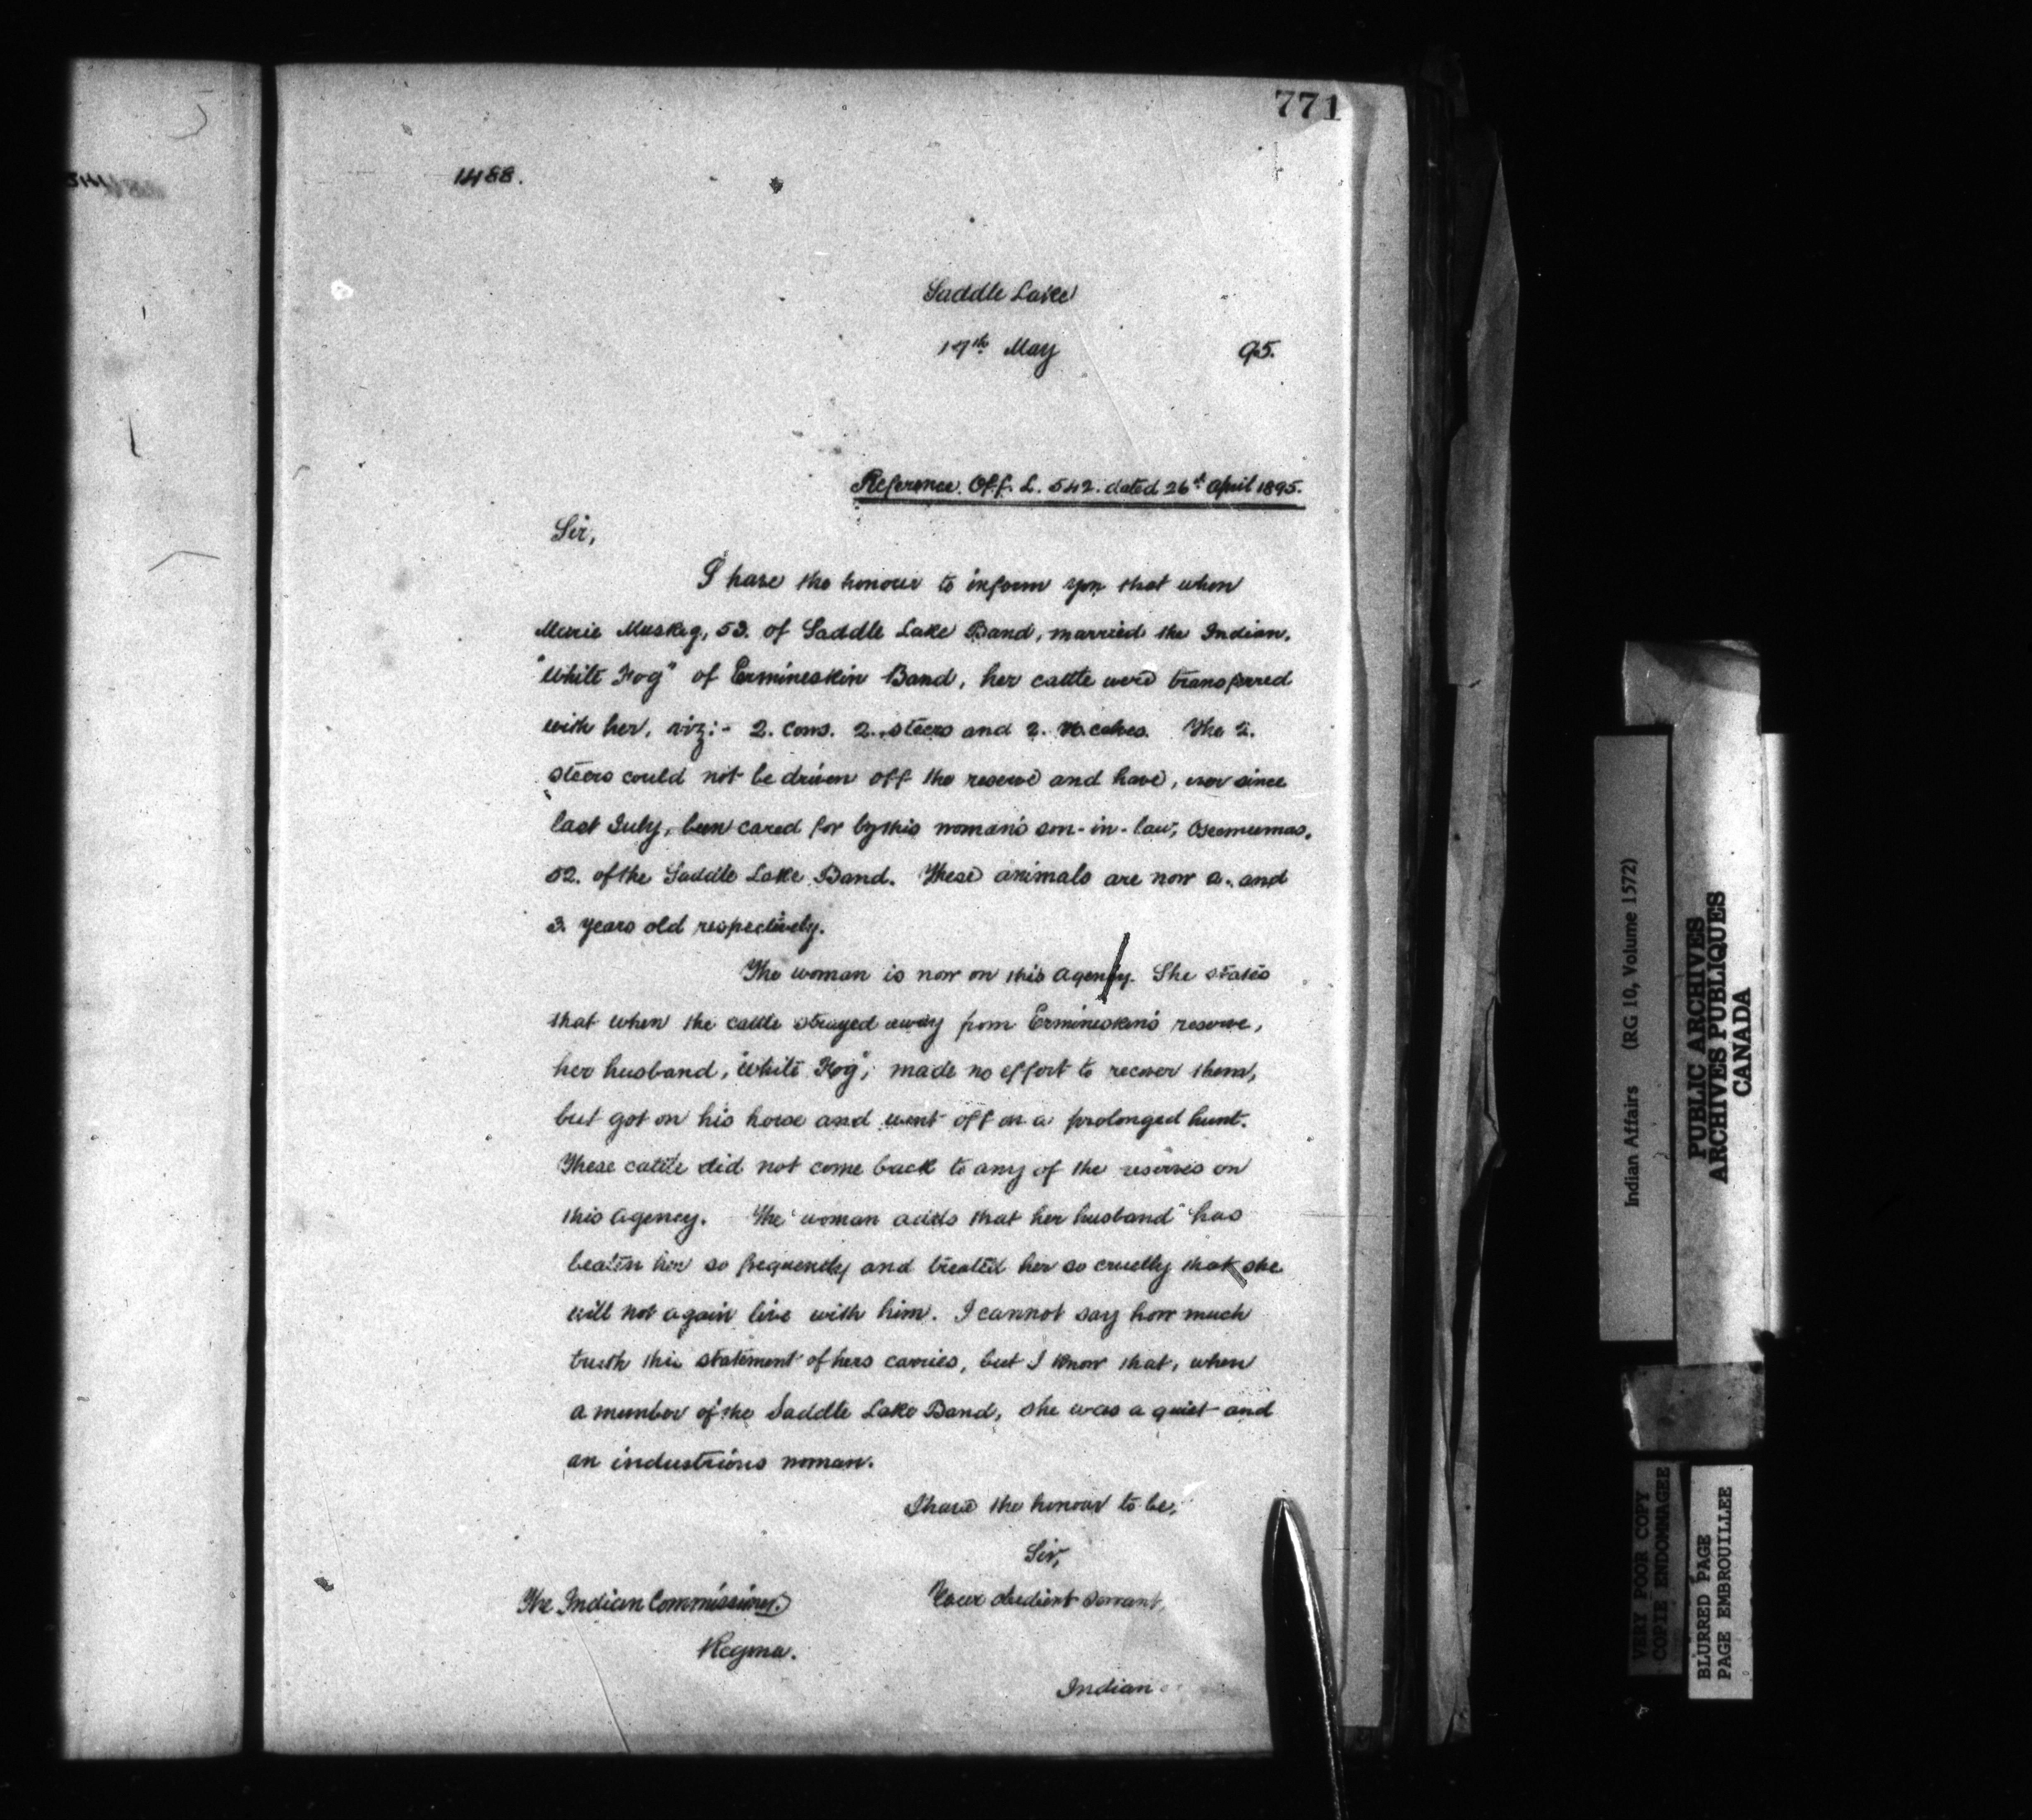 771
1488.
Saddle Lake
17th May 95.
Reference. Off. L. 542. dated 26th April 1895.
Sir,
I have the honour to inform you that when
Marie Muskeg, 53. of Saddle Lake Band, married the Indian,
"White Hog" of Ermineskin Band, her cattle were transferred
with her, viz:- 2. cows. 2. steers and 2. H. calves. The 2.
steers could not be driven off the reserve and have, ever since
last July, been cared for by this woman's son-in-law,
52. of the Saddle Lake Band. These animals are now 2. and
3. years old respectively.
The woman is now on this Agency. She states
that when the cattle strayed away from Ermineskin's reserve,
her husband, "White Hog", made no effort to recover them,
but got on his horse and went off on a prolonged hunt.
These cattle did not come back to any of the reserves on
this Agency. The woman adds that her husband has
beaten her so frequently and treated her so cruelly that she
will not again live with him. I cannot say how much
truth this statement of hers carries, but I know that, when
a member of the Saddle Lake Band, she was a quiet and
an industrious woman.
I have the honour to be,
Sir,
Your obedient servant,
The Indian Commissioner.
Regina.
Indian
Indian Affairs (RG 10, Volume 1572)
PUBLIC ARCHIVES
ARCHIVES PUBLIQUES
CANADA
VERY POOR COPY
COPIE ENDOMMAGEE
BLURRED PAGE
PAGE EMBROUILLEE